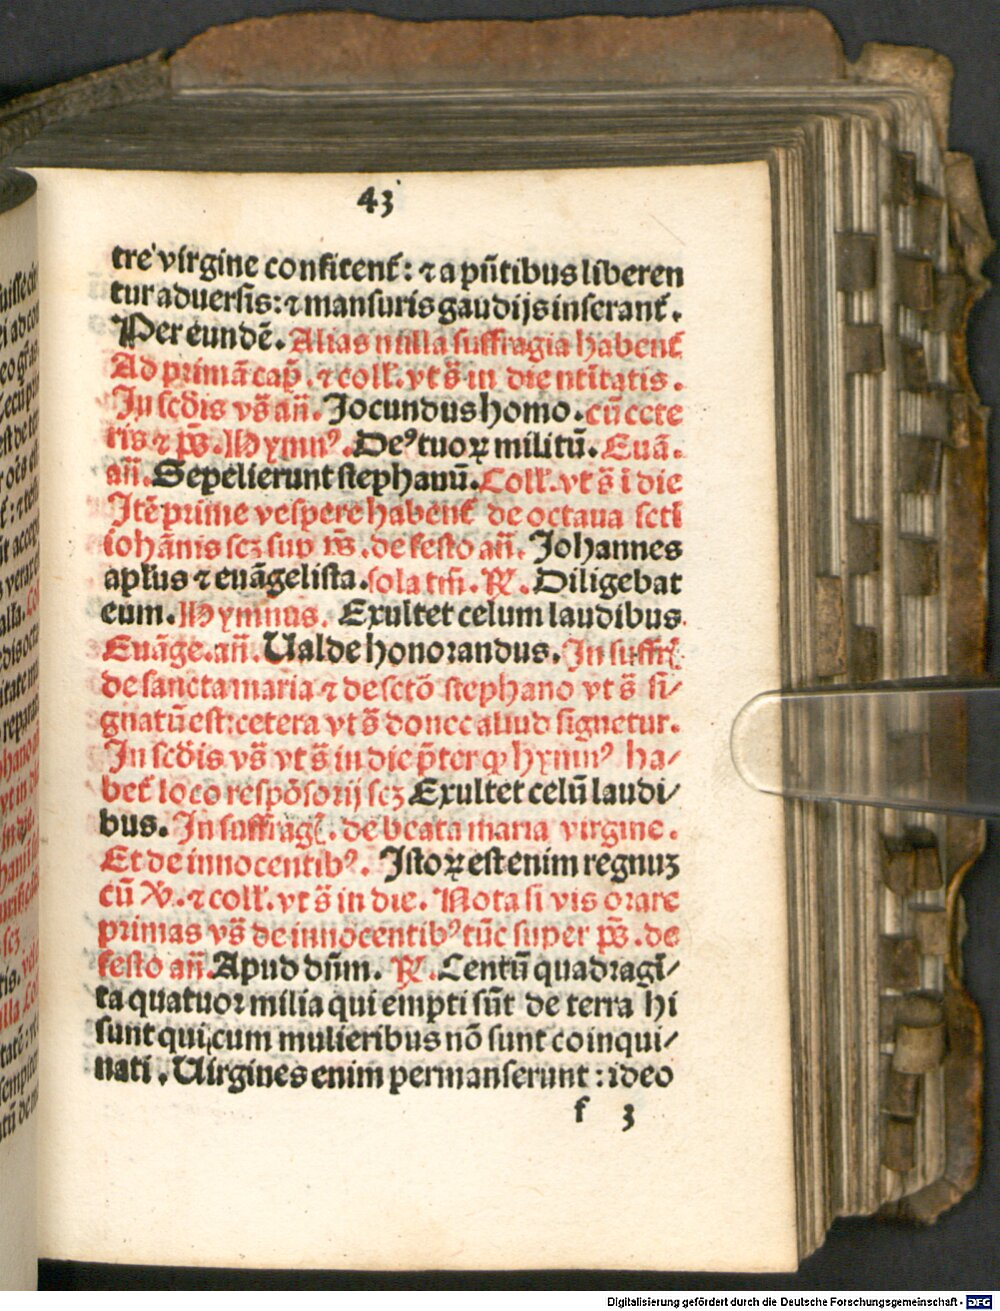 43
tre virgine confitent᷑: ⁊ a pn̄tibus liberen
tur aduersis: ⁊ mansuris gaudijs inserant᷑.
Per eundē. Alias nulla suffragia habent᷑
Ad primā cap̄. ⁊ coll̄. vt s̄ in die ntītatis.
In scd̄is vs̄ an̄. Jocundus homo. cū cete
ris ⁊ ps̄. Hymnꝰ. Deꝰ tuoꝝ militū. Euā.
an̄. Sepelierunt stephanū. Coll̄. vt s̄ ī die
Itē prime vespere habent᷑ de octaua scti
iohānis scꝫ sup ps̄. de festo an̄. Johannes
apl̄us ⁊ euāgelista. sola tm̄. ℟. Diligebat
eum. Hymnus. Exultet celum laudibus.
Euāge. an̄. Ualde honorandus. In suffr̄.
de sancta maria ⁊ de sctō stephano vt s̄ si/
gnatū est: cetera vt s̄ donec aliud signetur.
In scd̄is vs̄ vt s̄ in die p̄ter ꝙ hymnꝰ ha/
bet᷑ loco respōsorij scꝫ Exultet celū laudi/
bus. In suffraḡ. de beata maria virgine.
Et de innocentibꝰ. Istoꝝ est enim regnuꝫ
cū ℣. ⁊ coll̄. vt s̄ in die. Nota si vis orare
primas vs̄ de innocentibꝰ tūc super ps̄. de
festo an̄. Apud dn̄m. ℟. Centū quadragī/
ta quatuor milia qui empti sūt de terra hi
sunt qui cum mulieribus nō sunt coinqui/
nati. Uirgines enim permanserunt: ideo
f 3
Digitalisierung gefördert durch die Deutsche Forschungsgemeinschaft - DFG